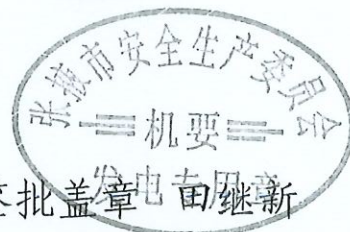 张掖市安全生产委员会
机要
发电专用章
签批盖章 田继新